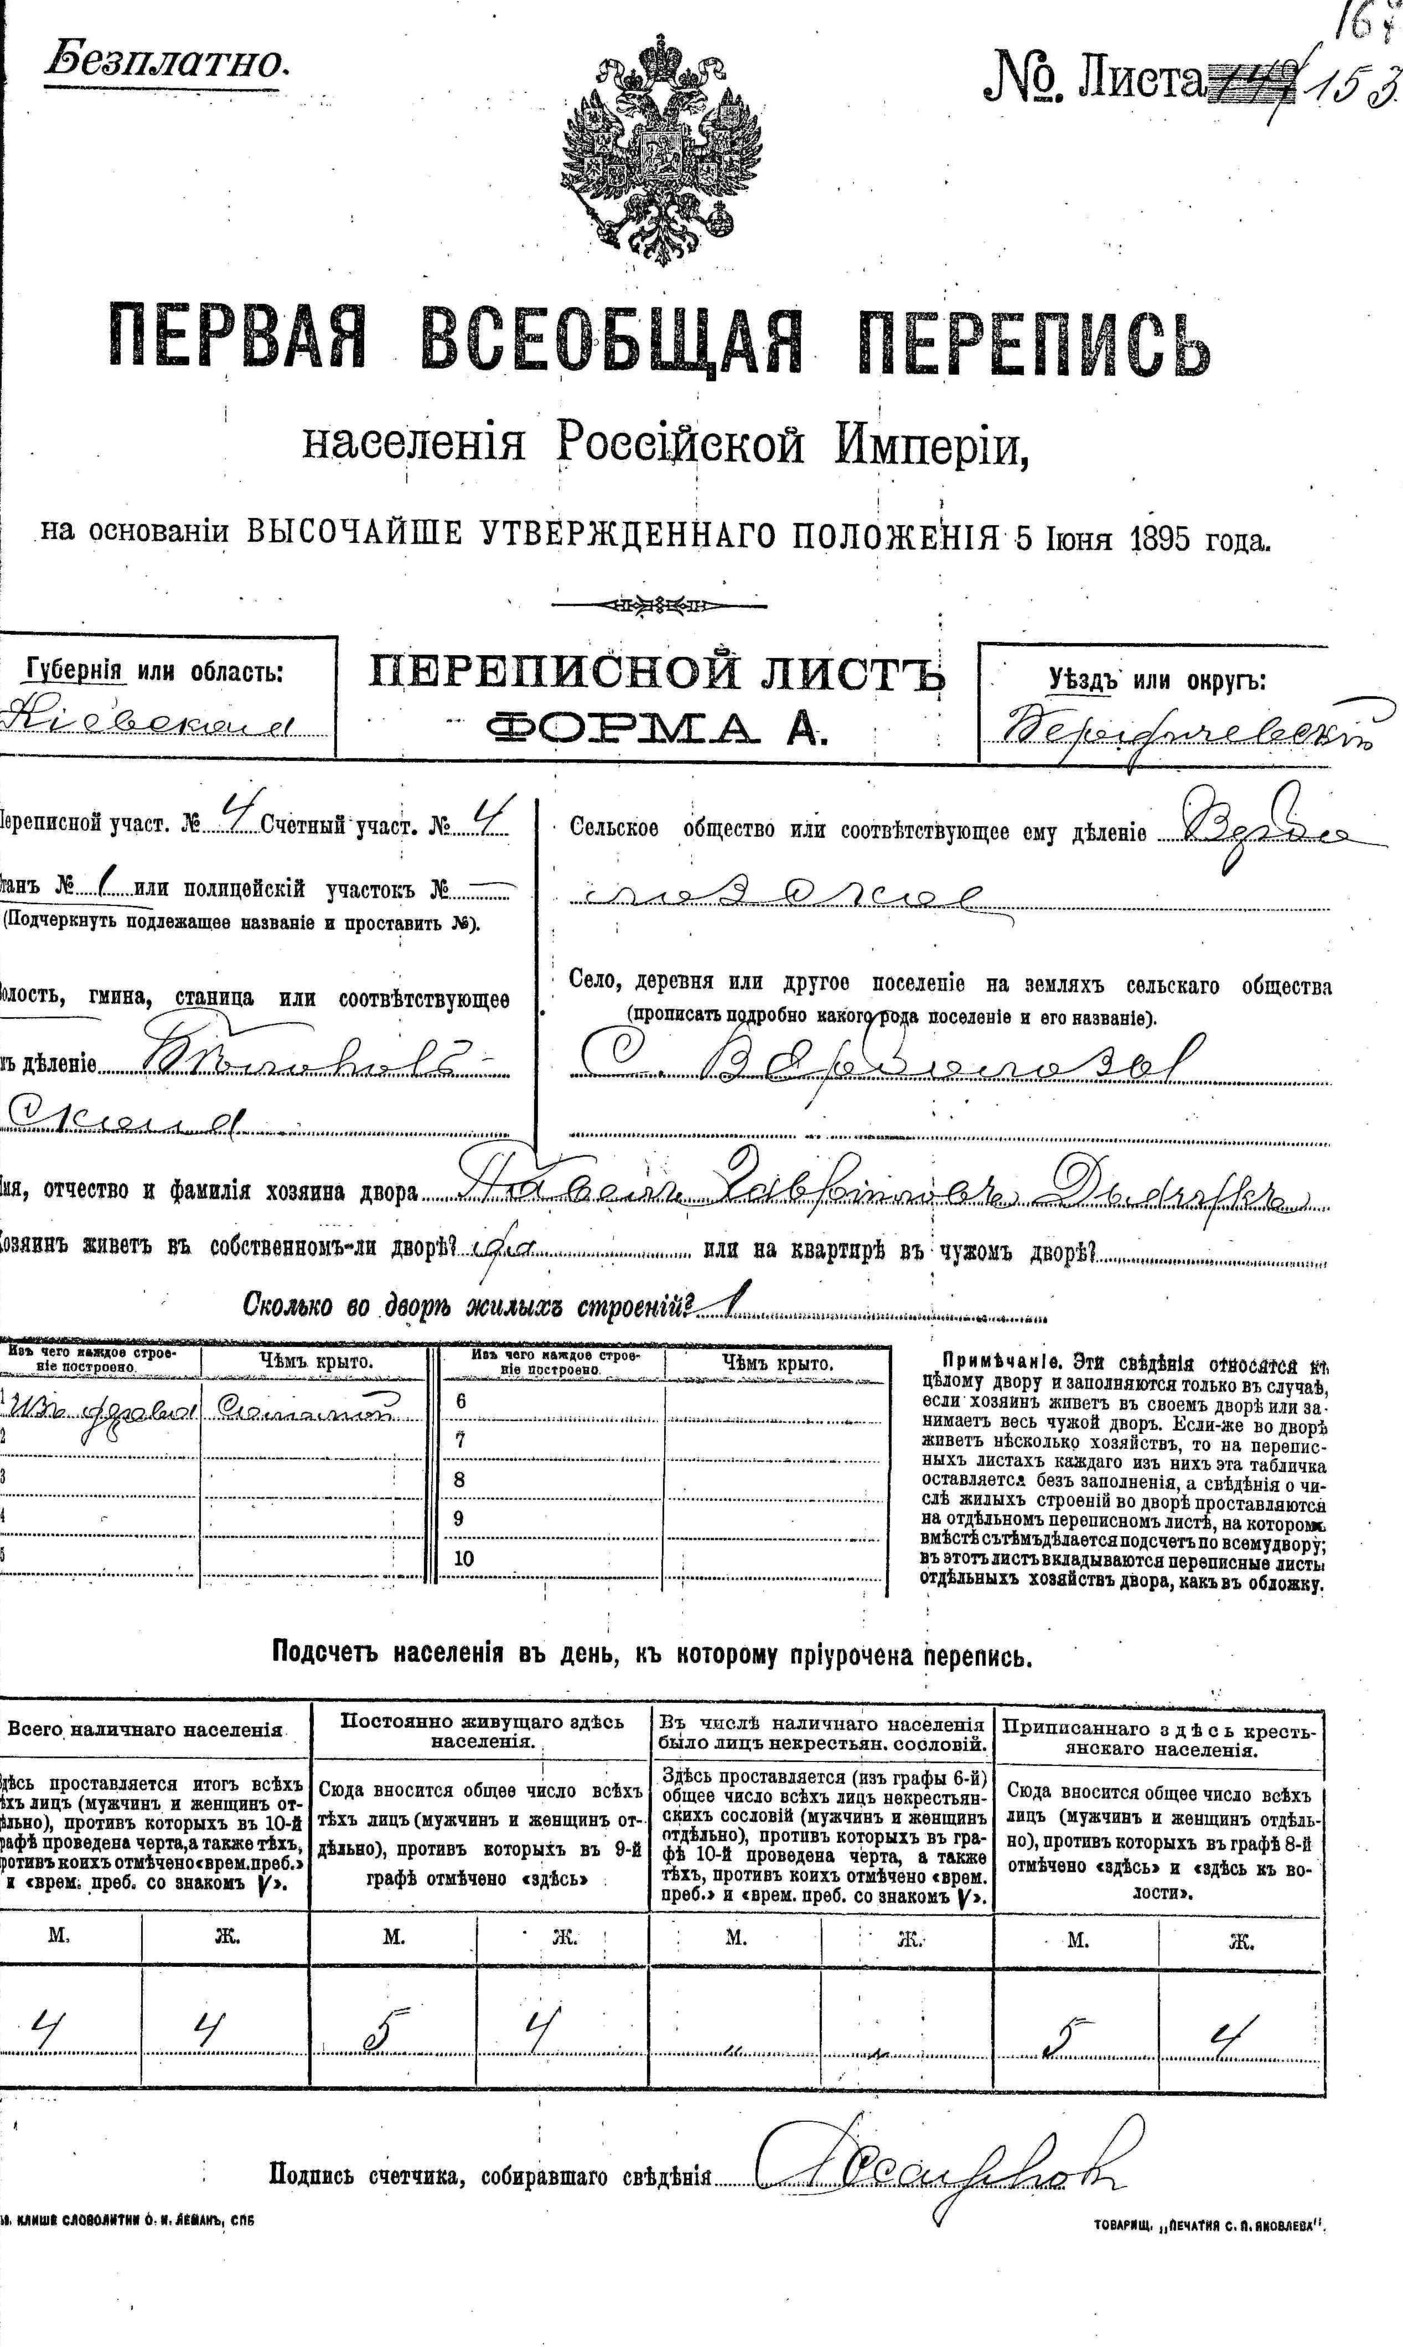 167
Безплатно.
№ Листа 147 153
ПЕРВАЯ ВСЕОБЩАЯ ПЕРЕПИСЬ
населенія Россійской Имперіи,
на основаніи ВЫСОЧАЙШЕ УТВЕРЖДЕННАГО ПОЛОЖЕНІЯ 5 Іюня 1895 года.
Губернія или область:
Кіевская
ПЕРЕПИСНОЙ ЛИСТЪ
ФОРМА А.
Уѣздъ или округъ:
Бердичевскій
Переписной участ. № 4 Счетный участ. № 4
танъ № 1 или полицейскій участокъ № —
(Подчеркнуть подлежащее названіе и проставить №).
олость, гмина, станица или соотвѣтствующее
ъ дѣленіе
ская
Сельское общество или соотвѣтствующее ему дѣленіе
Село, деревня или другое поселеніе на земляхъ сельскаго общества
(прописать подробно какого рода поселеніе и его названіе).
С.
мя, отчество и фамилія хозяина двора
Хозяинъ живетъ въ собственномъ-ли дворѣ? да или на квартирѣ въ чужомъ дворѣ?
Сколько во дворѣ жилыхъ строеній? 1
Изъ чего каждое строе-
ніе построено.
Чѣмъ крыто.
Изъ чего каждое строе-
ніе построено.
Чѣмъ крыто.
1 Изъ дрова Соломой
2
3
4
5
6
7
8
9
10
Примѣчаніе. Эти свѣдѣнія относятся къ
цѣлому двору и заполняются только въ случаѣ,
если хозяинъ живетъ въ своемъ дворѣ или за-
нимаетъ весь чужой дворъ. Если-же во дворѣ
живетъ нѣсколько хозяйствъ, то на перепис-
ныхъ листахъ каждаго изъ нихъ эта табличка
оставляется безъ заполненія, а свѣдѣнія о чи-
слѣ жилыхъ строеній во дворѣ проставляются
на отдѣльномъ переписномъ листѣ, на которомъ
вмѣстѣ съ тѣмъ дѣлается подсчетъ по всему двору;
въ этотъ листъ вкладываются переписные листы
отдѣльныхъ хозяйствъ двора, какъ въ обложку.
Подсчетъ населенія въ день, къ которому пріурочена перепись.
Всего наличнаго населенія
Здѣсь проставляется итогъ всѣхъ
ѣхъ лицъ (мужчинъ и женщинъ от-
ѣльно), противъ которыхъ въ 10-й
рафѣ проведена черта, а также тѣхъ,
ротивъ коихъ отмѣчено «врем. преб.»
и «врем. преб. со знакомъ V».
Постоянно живущаго здѣсь
населенія.
Сюда вносится общее число всѣхъ
тѣхъ лицъ (мужчинъ и женщинъ от-
дѣльно), противъ которыхъ въ 9-й
графѣ отмѣчено «здѣсь»
Въ числѣ наличнаго населенія
было лицъ некрестьян. сословій.
Здѣсь проставляется (изъ графы 6-й)
общее число всѣхъ лицъ некрестьян-
скихъ сословій (мужчинъ и женщинъ
отдѣльно), противъ которыхъ въ гра-
фѣ 10-й проведена черта, а также
тѣхъ, противъ коихъ отмѣчено «врем.
преб.» и «врем. преб. со знакомъ V».
Приписаннаго здѣсь кресть-
янскаго населенія.
Сюда вносится общее число всѣхъ
лицъ (мужчинъ и женщинъ отдѣль-
но), противъ которыхъ въ графѣ 8-й
отмѣчено «здѣсь» и «здѣсь къ во-
лости».
М. Ж. М. Ж. М. Ж. М. Ж.
4 4 5 4 „ „ 5 4
Подпись счетчика, собиравшаго свѣдѣнія
КЛИШЕ СЛОВОЛИТНИ О. И. ЛЕМАНЪ, СПБ
ТОВАРИЩ. „ПЕЧАТНЯ С. П. ЯКОВЛЕВА".